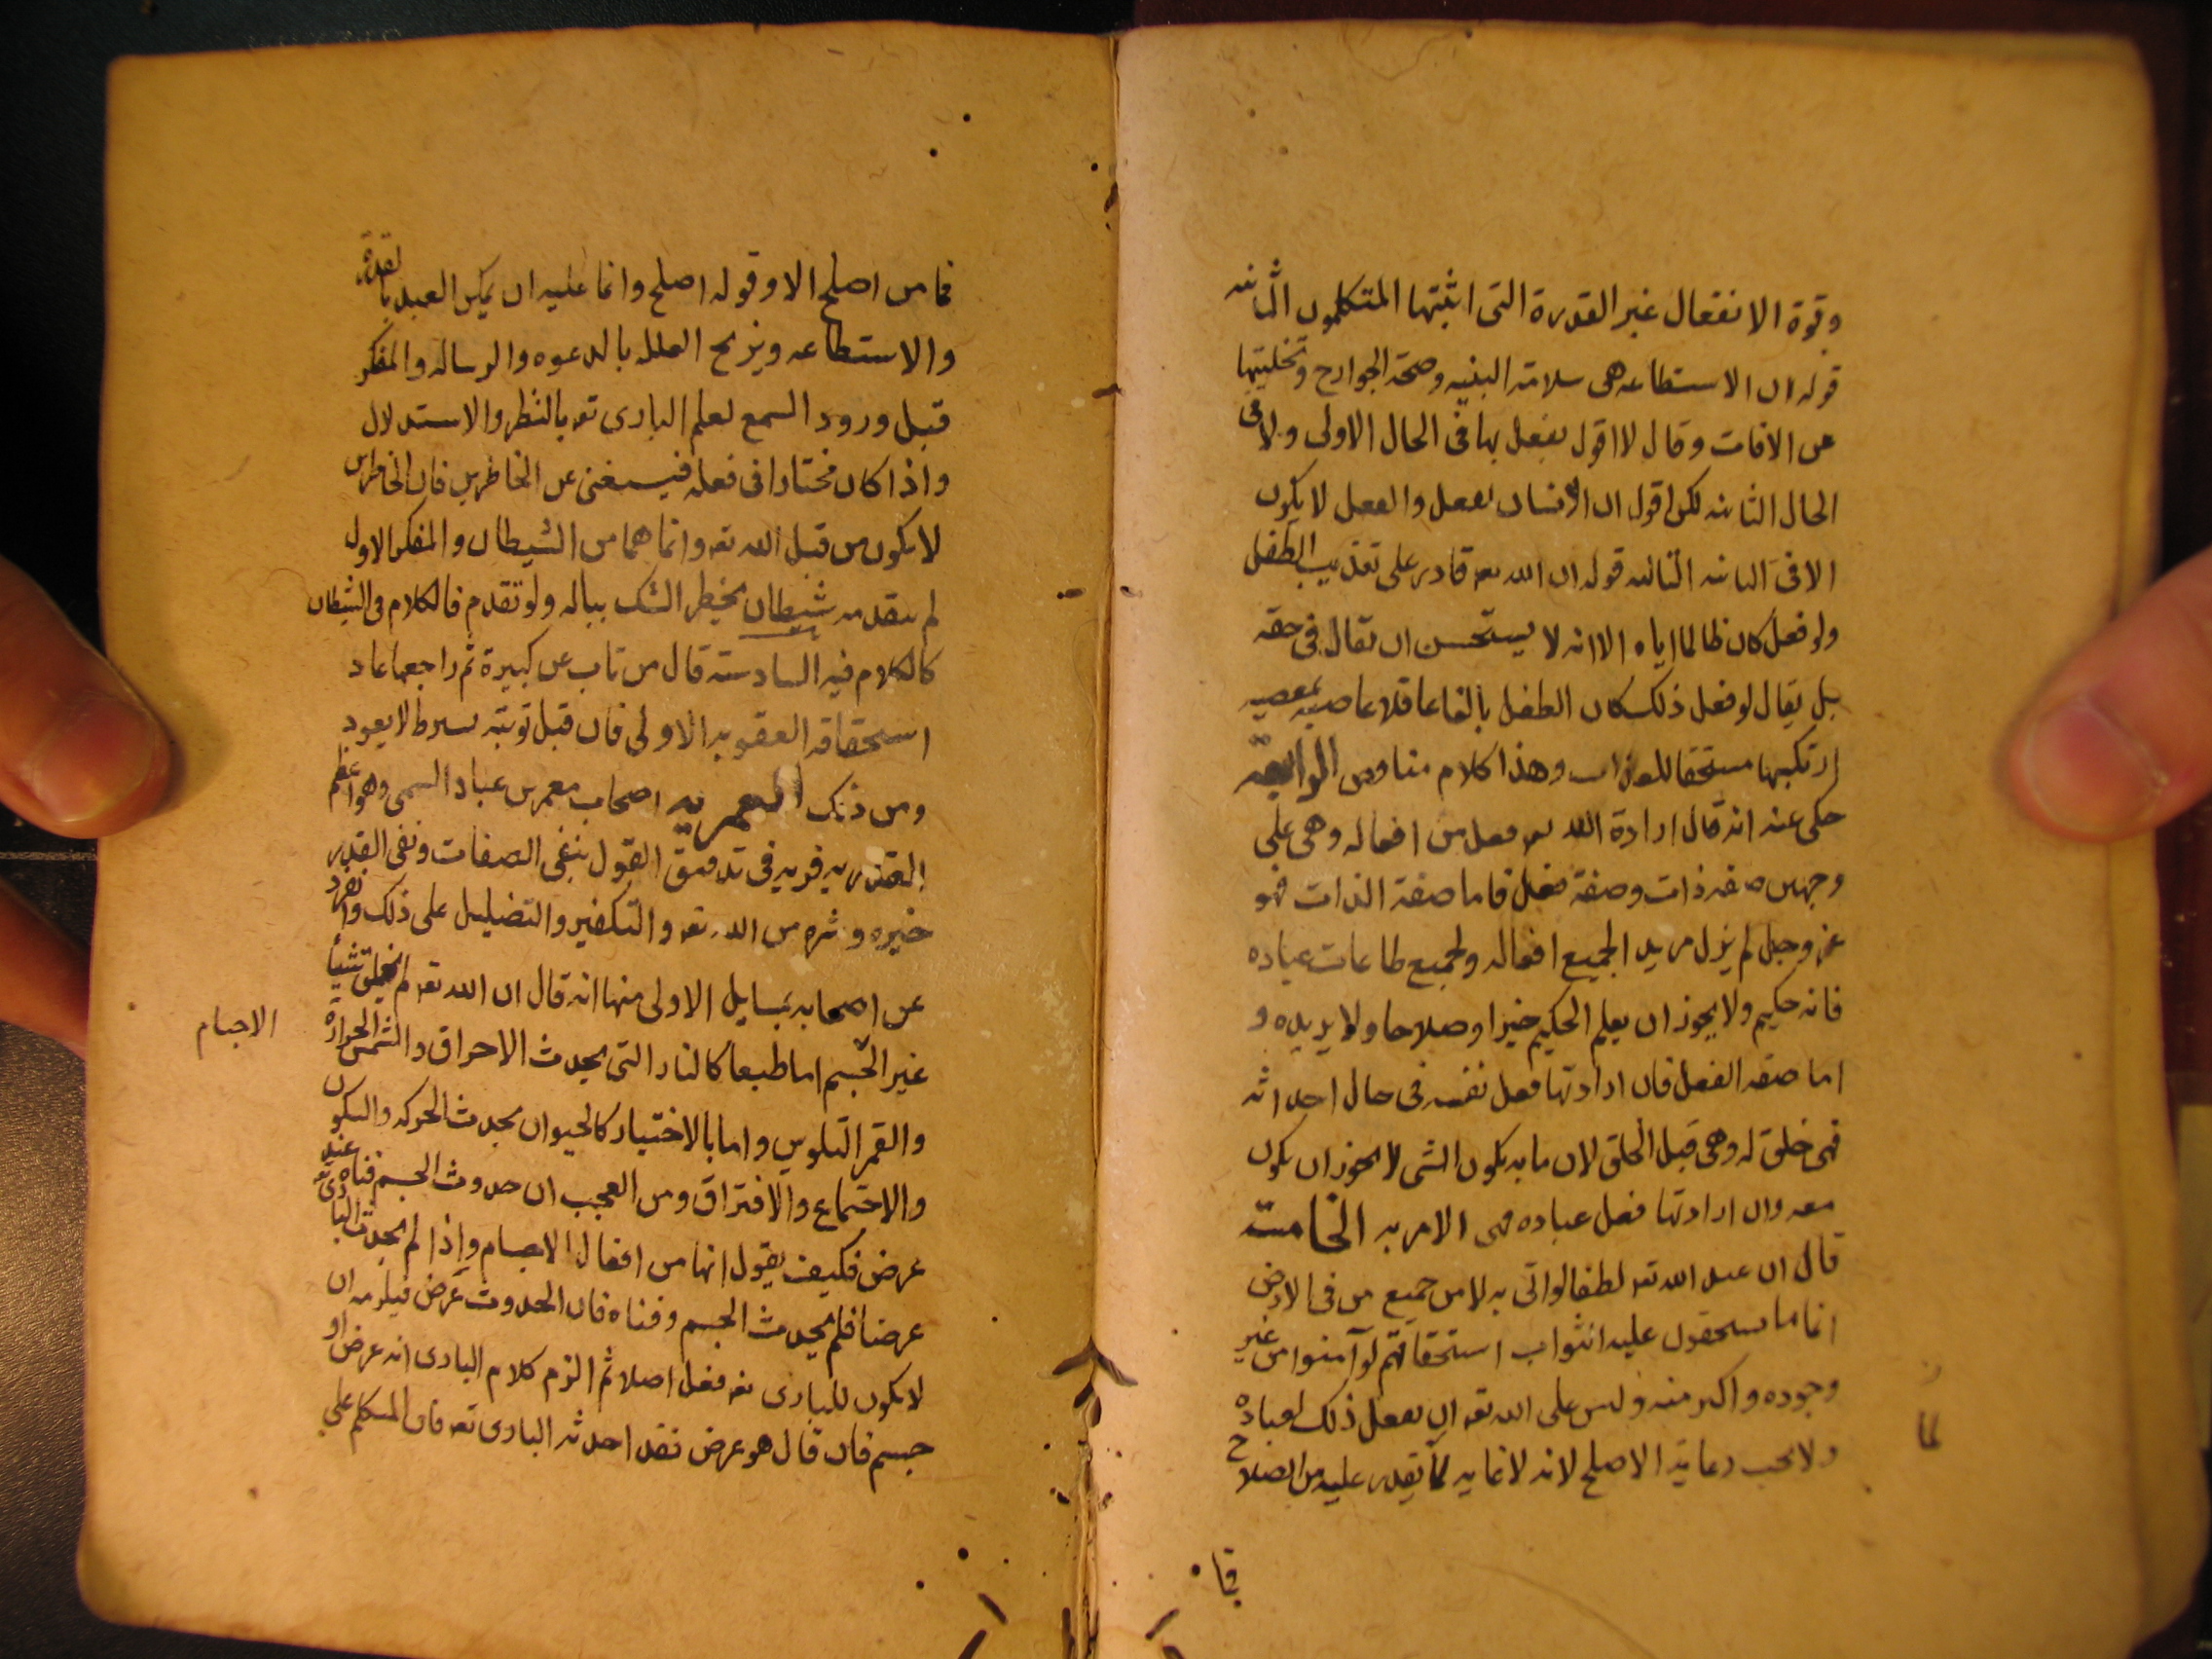 وقوة الانفعال غير القدرة التى اثبتها المتكلمون الثانيه
قوله ان الاستطاعه هى سلامة البنيه وصحة الجوارح وتخليتها
عن الافات وقال لا اقول يفعل بها فى الحال الاولى ولا فى
الحال الثانيه لكن اقول ان الانسان يفعل والفعل لا يكون
الا فى الثانيه الثالثه قوله ان الله تعه قادر على تعذيب الطفل
ولو فعل كان ظالما اياه الا انه لا يستحسن ان يقال فى حقه
بل يقال لو فعل ذلك كان الطفل بالغا عاقلا عاصيا بمعصيه
ارتكبها مستحقا للعذاب وهذا كلام متناقض الرابعة
حكى عنه انه قال ارادة الله تعه فعل من افعاله وهى على
وجهين صفه ذات وصفة فعل فاما صفة الذات فهو
عز وجل لم يزل مريدا لجميع افعاله ولجميع طاعات عباده
فانه حكيم ولا يجوز ان يعلم الحكيم خيرا وصلاحا ولا يريده و
اما صفه الفعل فان ارادتها فعل نفسه فى حال احداثه
فهى خلق له وهى قبل الخلق لان ما به يكون الشى لا يجوز ان يكون
معه وان ارادتها فعل عباده فهى الامر به الخامسة
قال ان عند الله تعه لطفا لو اتى به لامن جميع من فى الارض
انما ما يستحقون عليه الثواب استحقاقهم لو آمنوا من غير
وجوده واكثر منه وليس على الله تعه ان يفعل ذلك لعباده
ولا يجب رعاية الاصلح لانه لا غايه لما يقدر عليه من الصلاح
لما
فما
فما من اصلح الا وفوقه اصلح وانما عليه ان يمكن العبد بالقدرة
والاستطاعه ويزيح العلل بالدعوه والرساله والمفكر
قبل ورود السمع لعلم البارى تعه بالنظر والاستدلال
واذا كان مختارا فى فعله فيستغنى عن الخاطرين فان الخاطرين
لا يكون من قبل الله تعه وانما هما من الشيطان والمفكر الاول
لم يتقدمه شيطان يخطر الشك بباله ولو تقدم فالكلام فى الشيطان
كالكلام فيه السادسة قال من تاب عن كبيرة ثم راجعها عاد
استحقاقه العقوبه الاولى فان قبل توبته بشرط لا يعود
ومن ذلك المعمريه اصحاب معمر بن عباد السلمى وهو اعظم
القدريه فريه فى تدقيق القول بنفى الصفات ونفى القدر
خيره وشره من الله تعه والتكفير والتضليل على ذلك وانفرد
عن اصحابه بمسايل الاولى منها انه قال ان الله تعه لم يخلق شيأ
غير الجسم اما طبعا كالنار التى يحدث الاحراق والشمس الحرارة
الاجسام
والقمر التلوين واما بالاختيار كالحيوان يحدث الحركه والسكون
والاجتماع والافتراق ومن العجب ان حدوث الجسم فناه عنده
عرض فكيف يقول انها من افعال الاجسام واذا لم يحدث البارى تعه
عرضا فلم يحدث الجسم وفناه فان الحدوث عرض فيلزمه ان
لا يكون للبارى تعه فعل اصلا ثم الزم كلام البارى انه عرض او
جسم فان قال هو عرض فقد احدثه البارى تعه فان المتكلم على